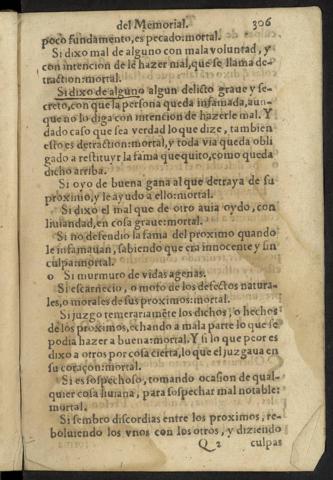 del Memorial. 306
poco fundamento, es pecado: mortal.
Si dixo mal de alguno con mala voluntad, y
con intencion de le hazer mal, que se llama de-
traction: mortal.
Si dixo de alguno algun delicto graue y se-
creto, con que la persona queda infamada, aun-
que no lo diga con intencion de hazerle mal. Y
dado caso que sea verdad lo que dize, tambien
esto es detraction: mortal, y toda via queda obli
gado a restituyr la fama que quito, como queda
dicho arriba.
Si oyo de buena gana al que detraya de su
proximo, y le ayudo a ello: mortal.
Si dixo el mal que de otro auia oydo, con
liuiandad, en cosa graue: mortal.
Si no defendio la fama del proximo quando
le infamauan, sabiendo que era innocente y sin
culpa: mortal.
o Si murmuro de vidas agenas.
Si escarnecio, o mofo de los defectos natura-
les, o morales de sus proximos: mortal.
Si juzgo temerariamẽte los dichos, o hechos
de los proximos, echando a mala parte lo que se
podia hazer a buena: mortal. Y si lo que peor es
dixo a otros por cosa cierta, lo que el juzgaua en
su coraçon: mortal.
Si es sospechoso, tomando ocasion de qual-
quier cosa liuiana, para sospechar mal notable:
mortal.
Si sembro discordias entre los proximos, re-
boluiendo los vnos con los otros, y diziendo
Q 2 culpas